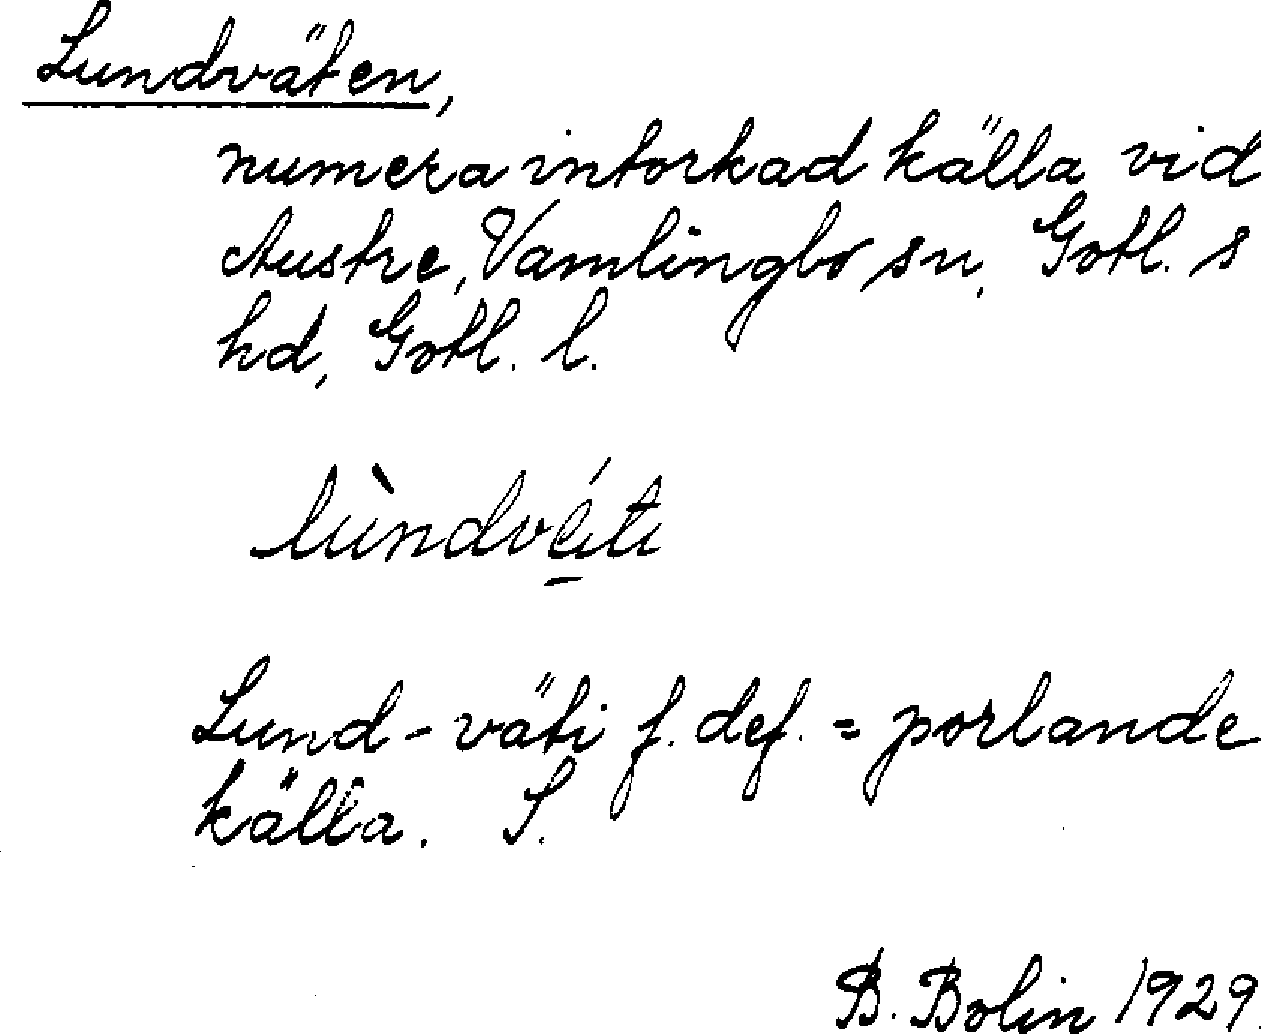 Lundväten,
numera intorkad källa vid
Austre, Vamlingbo sn, Gotl. s
hd, Gotl. l.
Lund-väti f. def. = porlande
källa. S.
B. Bolin 1929.